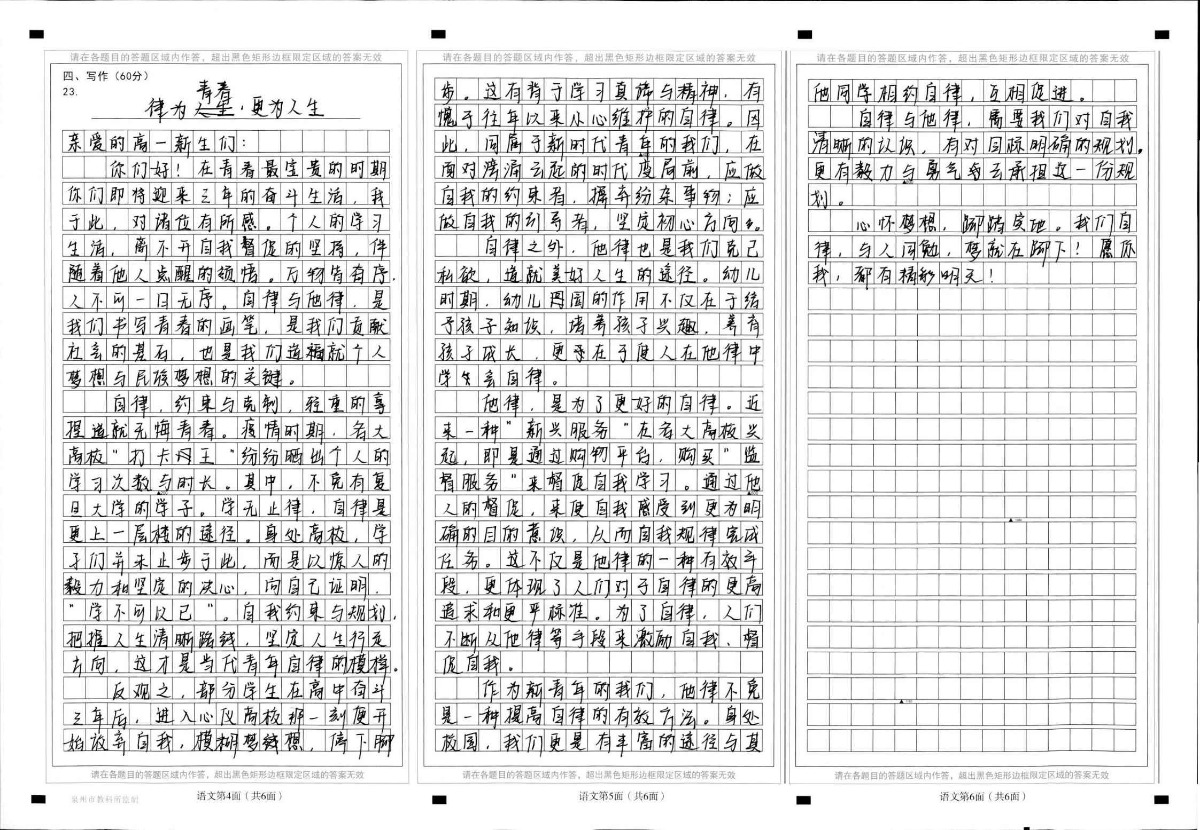 请在各题目的答题区域内作答，超出黑色矩形边框限定区域的答案无效
四、写作（60分）
23.
青春
律为，更为人生
亲爱的高一新生们：
你们好！在青春最宝贵的时期
你们即将迎来三年的奋斗生活，我
于此，对诸位有所感。个人的学习
生活，离不开自我督促的坚持，伴
随着他人点醒的领悟。万物皆有序，
人不可一日无序。自律与他律，是
我们书写青春的画笔，是我们贡献
社会的基石，也是我们造就个人
梦想与民族梦想的关键。
自律，约束与克制，轻重的拿
捏造就无悔青春。疫情时期，各大
高校“打卡王”纷纷晒出个人的
学习次数与时长。其中，不免有复
旦大学的学子。学无止律，自律是
更上一层楼的途径。身处高校，学
子们并未止步于此，而是以惊人的
毅力和坚定的决心，向自己证明，
“学不可以已”。自我约束与规划，
把握人生清晰路线，坚定人生行走
方向，这才是当代青年自律的模样。
反观之，部分学生在高中奋斗
三年后，进入心仪高校那一刻便开
始放弃自我，模糊梦想，停下脚
请在各题目的答题区域内作答，超出黑色矩形边框限定区域的答案无效
泉州市教科所监制
语文第4面（共6面）
请在各题目的答题区域内作答，超出黑色矩形边框限定区域的答案无效
步。这有背于学习真谛与精神，有
愧于往年以来小心维护的自律。因
此，同属于新时代青年的我们，在
面对滂涌云起的时代变局前，应做
自我的约束者，摒弃纷杂事物；应
做自我的引导者，坚定初心方向。
自律之外，他律也是我们克己
私欲，造就美好人生的途径。幼儿
时期，幼儿园的作用不仅在于给
予孩子知识，培养孩子兴趣，养育
孩子成长，更在于使人在他律中
学会自律。
他律，是为了更好的自律。近
来一种“新兴服务”在各大高校兴
起，即是通过购物平台，购买“监
督服务”来督促自我学习。通过他
人的督促，来使自我感受到更为明
确的目的意识，从而自我规律完成
任务。这不仅是他律的一种有效手
段，更体现了人们对于自律的更高
追求和更平标准。为了自律，人们
不断从他律等手段来激励自我、督
促自我。
作为新青年的我们，他律不免
是一种提高自律的有效方法。身处
校园，我们更是有丰富的途径与其
请在各题目的答题区域内作答，超出黑色矩形边框限定区域的答案无效
语文第5面（共6面）
请在各题目的答题区域内作答，超出黑色矩形边框限定区域的答案无效
他同学相约自律，互相促进。
自律与他律，需要我们对自我
清晰的认识，有对目标明确的规划。
更有毅力与勇气去承担这一份规
划。
心怀梦想，脚踏实地。我们自
律，与人同勉，梦就在脚下！愿你
我，都有精彩明天！
请在各题目的答题区域内作答，超出黑色矩形边框限定区域的答案无效
语文第6面（共6面）